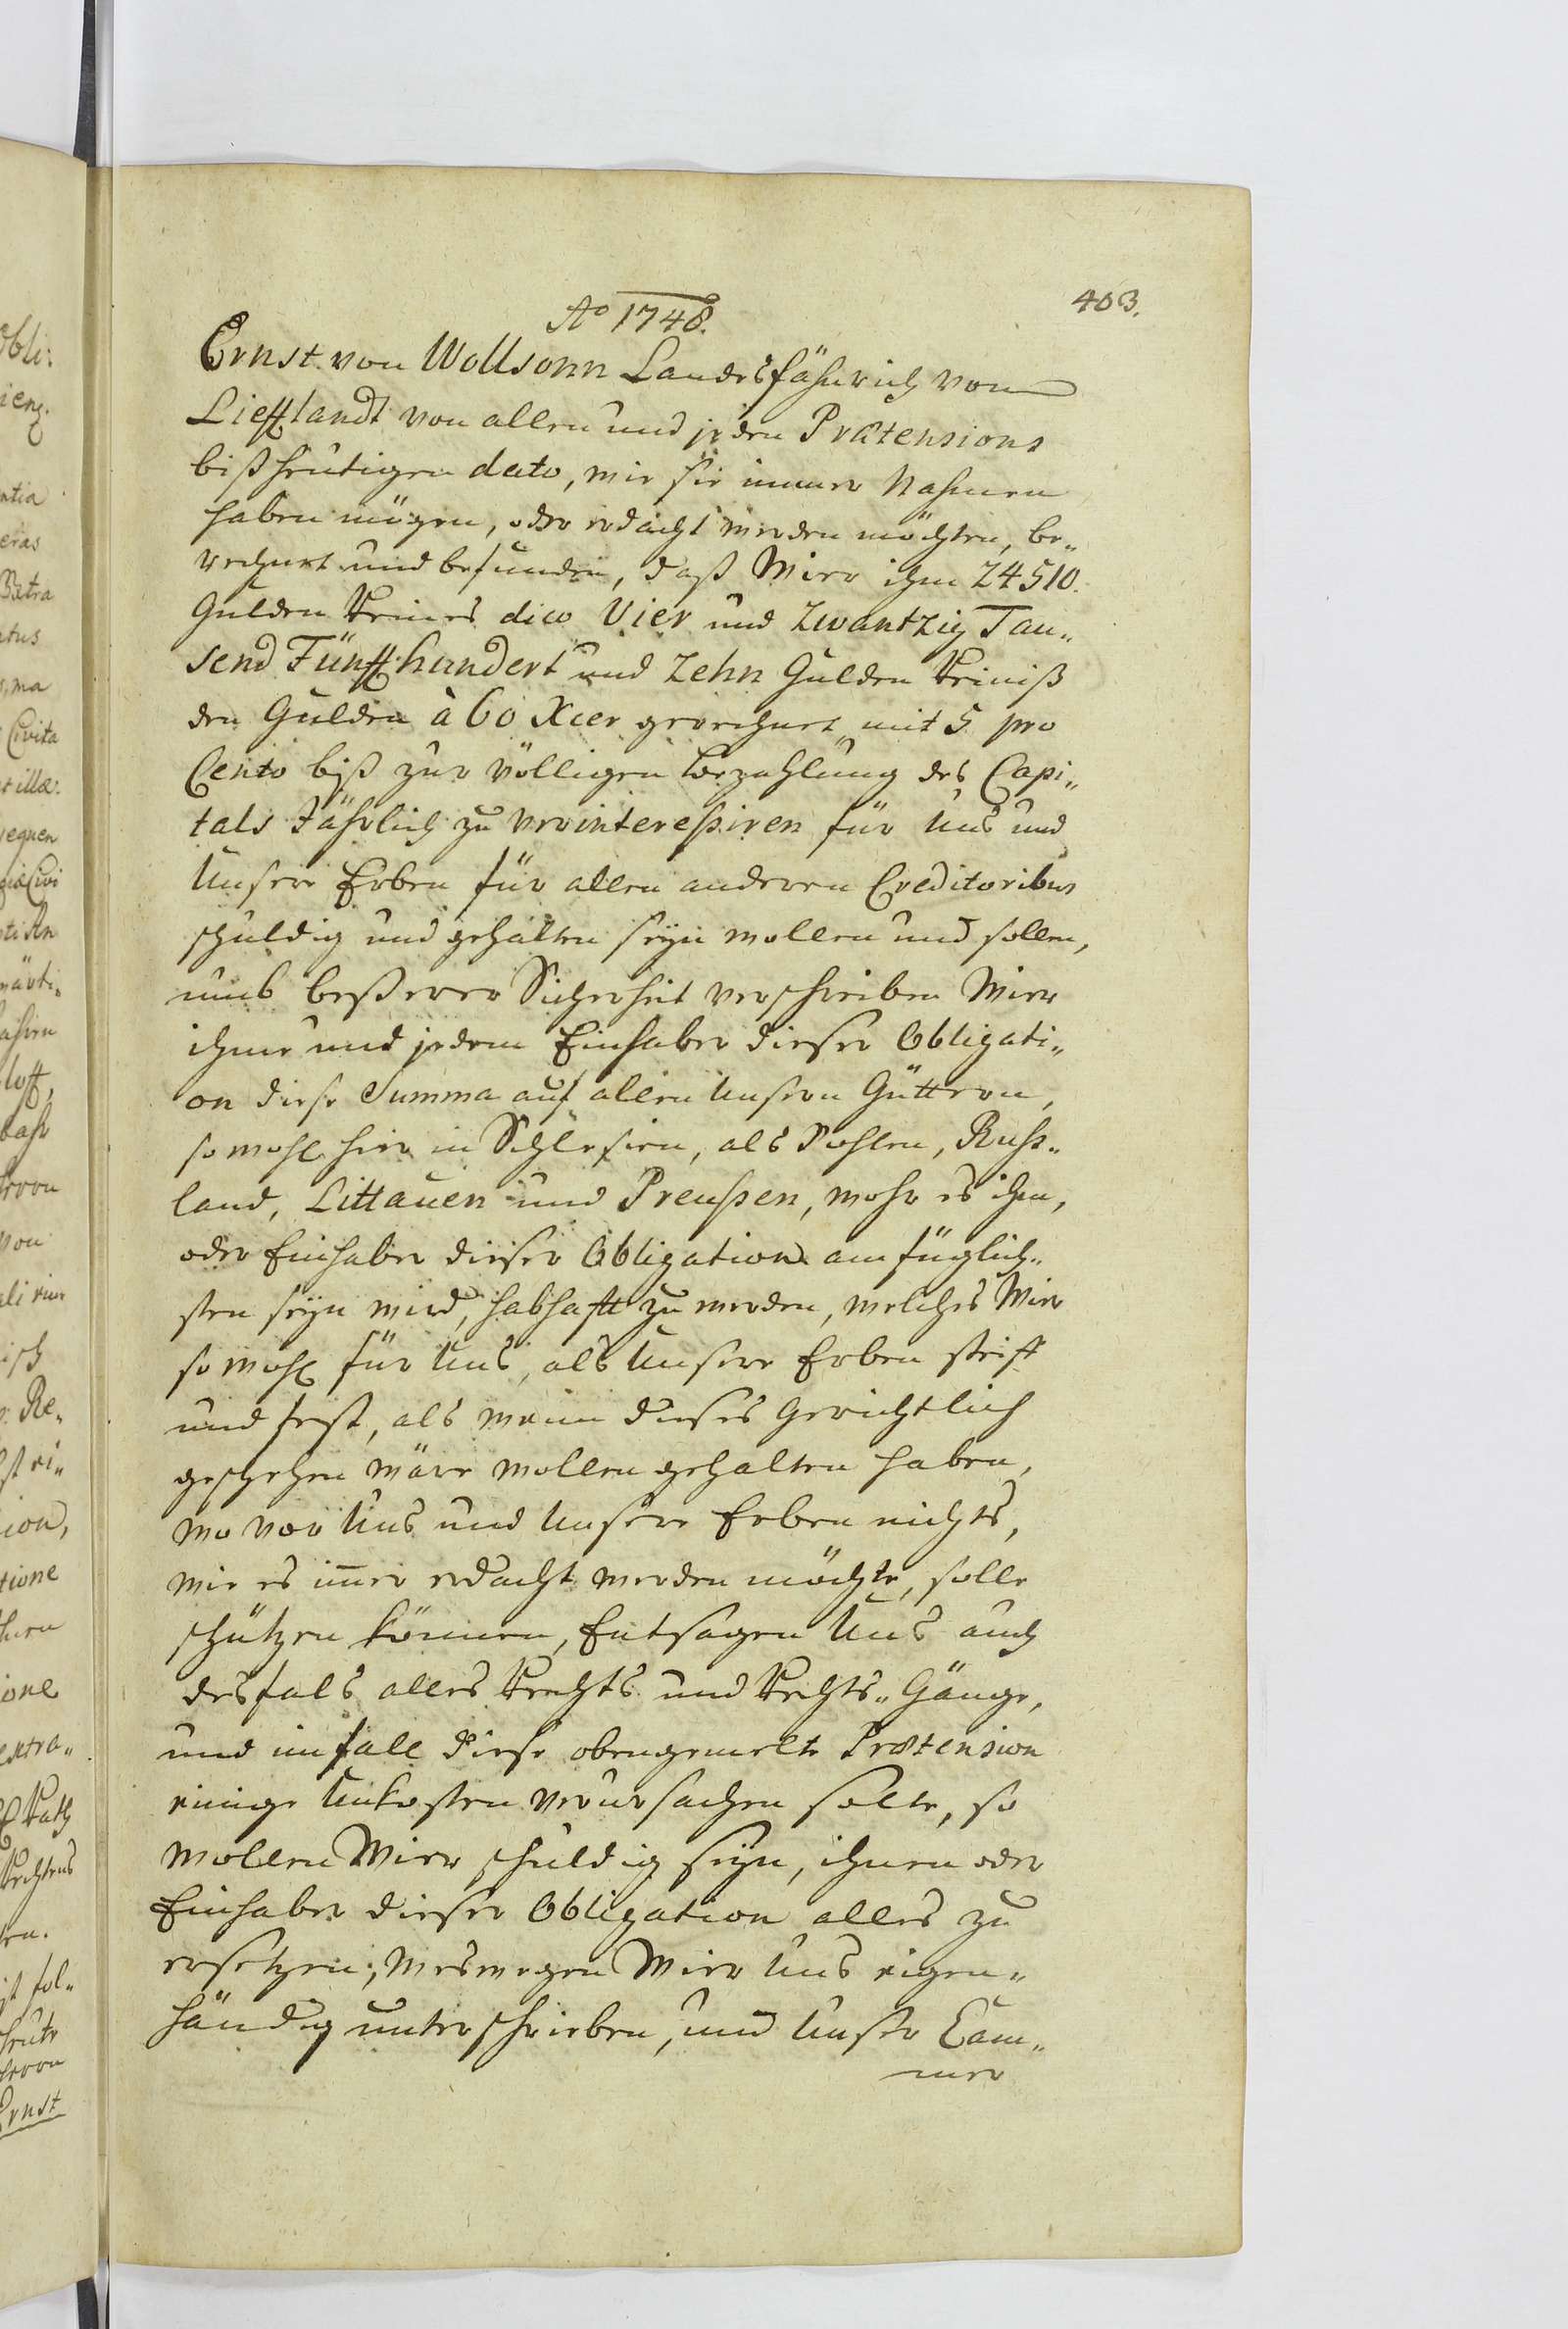 403.
Ao 1748.
Ernst von Wollsonn Landesfähnrich von
Liefflandt von allen und jeden Prætensions
biß heutigen dato, wie sie immer Nahmen
haben mögen, oder erdacht werden möchten, be„
rechnet und befunden, daß Wier ihm 24510.
Gulden Reines dico Vier und Zwantzig Tau„
send Fünff hundert und Zehn Gulden Reiniß
den Gulden à 60 Xcer gerechnet mit 5 pro
Cento biß zur völligen bezahlung des Capi„
tals Jährlich zu verinteressiren für Uns und
Unsere Erben für allen anderen Creditoribus
schuldig und gehalten seyn wollen und sollen,
umb beßerer Sicherheit verschreiben Wier
ihme und jedem Einhaber dieser Obligati„
on diese Summa auf allen Unsern Güttern,
so wohl hier in Schlesien, als Pohlen, Russ„
land, Littauen und Preussen, wohr es ihm,
oder Einhaber dieser Obligation am füglich„
sten seyn wird, habhafft zu werden, welches Wier
so wohl für Uns, als Unsere Erben steiff
und fest, als wenn dieses Gerichtlich
geschehen wäre wollen gehalten haben,
wo vor Uns und Unsere Erben nichts,
wie es im̄er erdacht werden möchte, solle
schützen können, Entsagen Uns auch
desfals alles Rechts und Rechts„ Gänge,
und im fall diese obengemelte Prætension
einige Unkosten verursachen solte, so
wollen Wier schuldig seyn, ihnen oder
Einhaber dieser Obligation alles zu
ersetzen; weswegen Wier Uns eigen„
händig unterschrieben, und Unser Cam„
mer